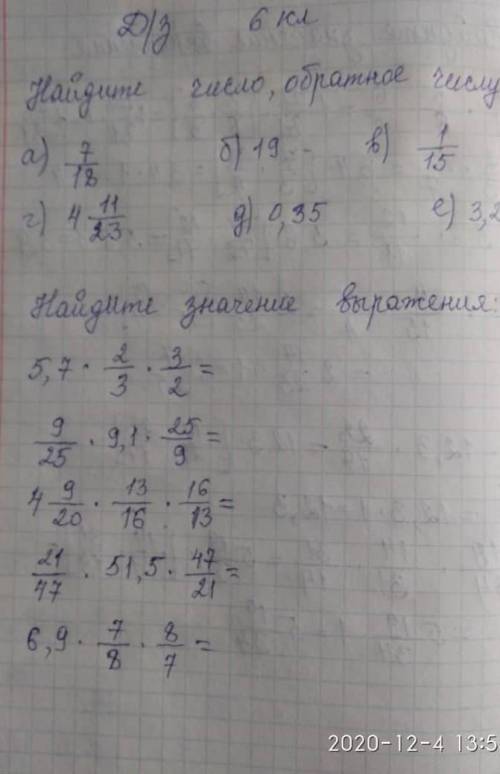 Д/З 6 кл
Найдите число, обратное числу
а) 7/18 б) 19 в) 1/15
г) 4 11/23 д) 0,35 е) 3,2
Найдите значение выражения:
5,7 · 2/3 · 3/2 =
9/25 · 9,1 · 25/9 =
4 9/20 · 13/16 · 16/13 =
21/47 · 51,5 · 47/21 =
6,9 · 7/8 · 8/7 =
2020-12-4 13:5